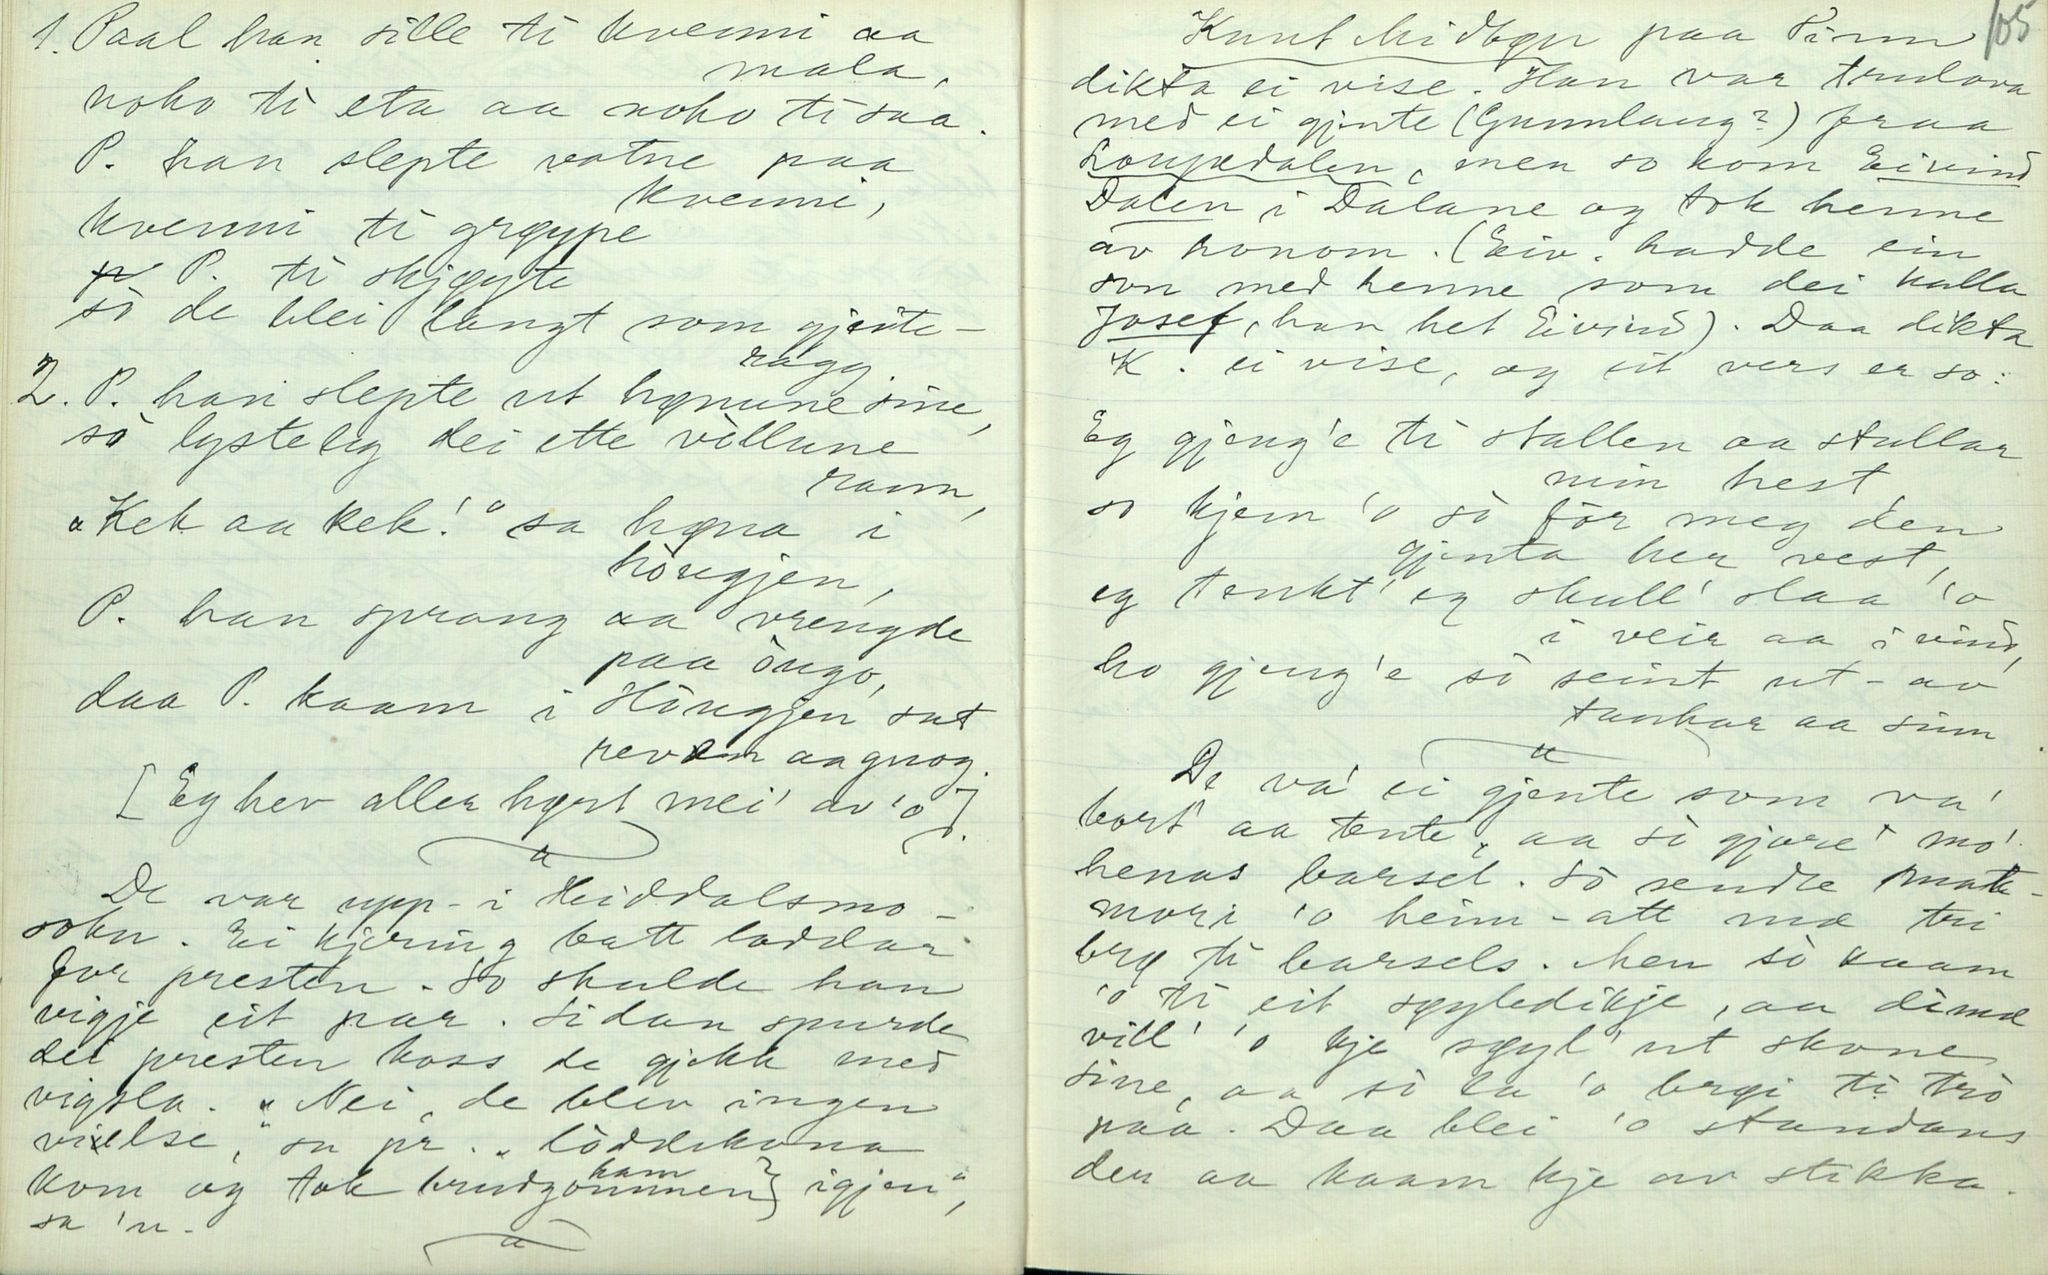 1. Paal han sille ti kvenni aa
mala,
noko ti eta aa noko ti saa.
P. han slepte vatne paa
kvenni,
kvenni ti grøype
P. ti skjøyte
sò de blei langt som gjeite-
ragg
2. P. han slepte ut hønune sine,
sò lysteleg dei ette vòllune
rann,
"Kek aa kek!" sa høna i
hòugjen,
P. han sprang aa vrengde
paa òugo,
daa P. kaam i Hòugjen sat
reven aa gnog.
[Eg hev aller høyrt mei' av 'o].
De var upp-i Heiddalsmo-
sokn. Ei kjering batt loddar
for presten. So skulde han
vigje eit par. Sidan spurde
dei presten koss de gjekk med
vigsla. "Nei, de blev ingen
vielse," sa pr. "lòddekona
kom og tok brudgommen} igjen",
ham
sa 'n.
105
Knut Midbøen paa Tinn
dikta ei vise. Han var trulova
med ei gjente (Gunnlaug?) fraa
Longedalen, men so kom Eivind
Dalen i Dalane og tok henne
av honom. (Eiv. hadde ein
son med henne som dei kalla
Josef, han het Eivind). Daa dikta
K. ei vise, og eit vers er so:
Eg gjeng'e ti stallen aa stullar
min hest,
so kjem 'o sò fòr meg den
gjenta her vest,
eg tenkt' eg skull' slaa 'o
i veir aa i vind,
ho gjeng'e sò seint ut-av
tankar aa sinn.
De va' ei gjente som va'
bort' aa tente, aa sò gjore' mo'
henas barsel. Sò sendte mat-
mori 'o heim-att mæ tri
brø ti barsels. Men sò kaam
'o ti eit søyledikje, aa dimæ
vill' 'o kje søyl' ut skone
sine, aa sò la 'o brøi ti trò
paa. Daa blei 'o standans
der aa kaam kje av stikka.